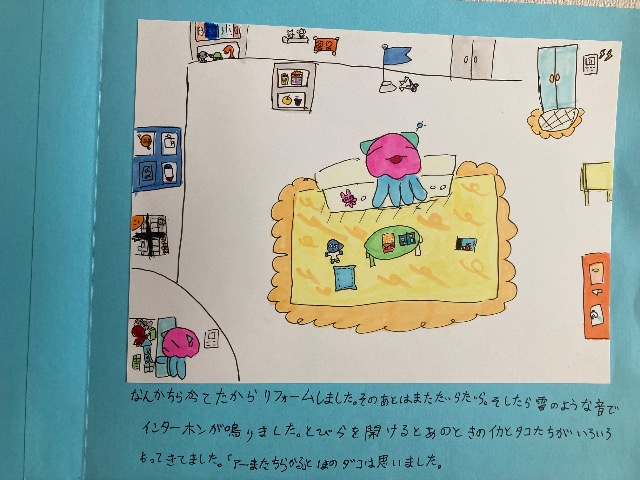 なんかちらかってたからリフォームしました。そのあとはまただらだら。そしたら雪のような音で
インターホンが鳴りました。とびらを開けるとあのときのイカとタコたちがいろいろ
もってきてました。「アーまたちらかる」とほのダコは思いました。